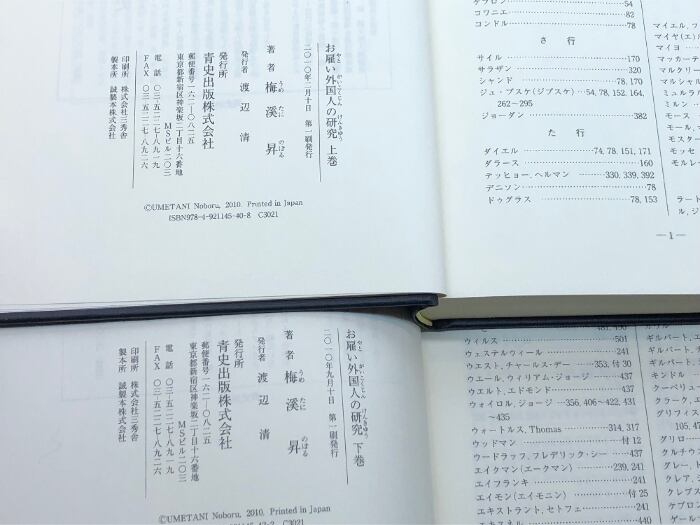 お雇い外国人の研究 上巻
やと がいこくじん けんきゅう
二〇一〇年二月十日 第一刷発行
著者 梅溪 昇
うめ たに のぼる
発行者 渡辺 清
発行所
青史出版株式会社
郵便番号一六二-〇八二五
東京都新宿区神楽坂二丁目十六番地
MSビル二〇三
電話 〇三-五二二七-八九一九
FAX 〇三-五二二七-八九二六
印刷所 株式会社三秀舎
製本所 誠製本株式会社
©UMETANI Noboru, 2010. Printed in Japan
ISBN978-4-921145-40-8 C3021
54
コワニエ 82
コンドル 78
さ 行
サイル 170
サラザン 320
シャンド 78, 170
ジュ・ブスケ(ジブスケ) 54, 78, 152, 164,
262~295
ジョーダン 382
た 行
ダイエル 74, 78, 151, 171
ダラース 160
テッヒョー、ヘルマン 330, 339, 392
デニソン 78
ドゥグラス 78, 153
マイエル,フ
マイヤ(エル)
マイヨ
マッカーテ
マルクリー
マルシャル
ミュルラル
ミルン
モース
モール,
モスター
モッセ
モルレー
ラート
ル,ジ
—1—
お雇い外国人の研究 下巻
やと がいこくじん けんきゅう
二〇一〇年九月十日 第一刷発行
著者 梅溪 昇
うめ たに のぼる
発行者 渡辺 清
発行所
青史出版株式会社
郵便番号一六二-〇八二五
東京都新宿区神楽坂二丁目十六番地
MSビル二〇三
電話 〇三-五二二七-八九一九
FAX 〇三-五二二七-八九二六
印刷所 株式会社三秀舎
製本所 誠製本株式会社
©UMETANI Noboru, 2010. Printed in Japan
C3021
481, 490
ウィルス 501
ウェステルウィール 241
ウエスト,チャールス・デー 353, 付30
ウエール,ウィリアム・ジョージ 437
ウエルト,エドモンド 437
ウォイロル,ジョージ 356, 406~422, 431
~435
ウォートルス, Thomas 314, 317
ウッドマン 付12
ウードラッフ,フレデリック・シー 437
エイクマン(エークマン) 239, 241
エイフランキ 241
エイモン(エイモニン) 付25
エキストラント,セトフェ 241
エキスネル 440
ギルバート,エ
ギルバート,
キンドル
クーペリュ
クラーク,エ
グリフィス
105, 47
グリロー
クルチウ
グレー,
クレイ,
クレブス
ケプロン
ゲール